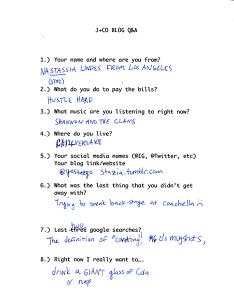 J+CO BLOG Q&A
1.) Your name and where are you from?
NASTASSIA LINDES FROM LOS ANGELES
(STAZ)
2.) What do you do to pay the bills?
HUSTLE HARD
3.) What music are you listening to right now?
SHANNON AND THE CLAMS
4.) Where do you live?
SILVERLAKE
5.) Your social media names (@IG, @Twitter, etc)
Your blog link/website
stazia.tumblr.com
6.) What was the last thing that you didn't get
away with?
Trying to sneak back-stage at coachella
7.) Last three google searches?
The definition of "curating", mugshots,
8.) Right now I really want to...
drink a GIANT glass of Coke
or nap